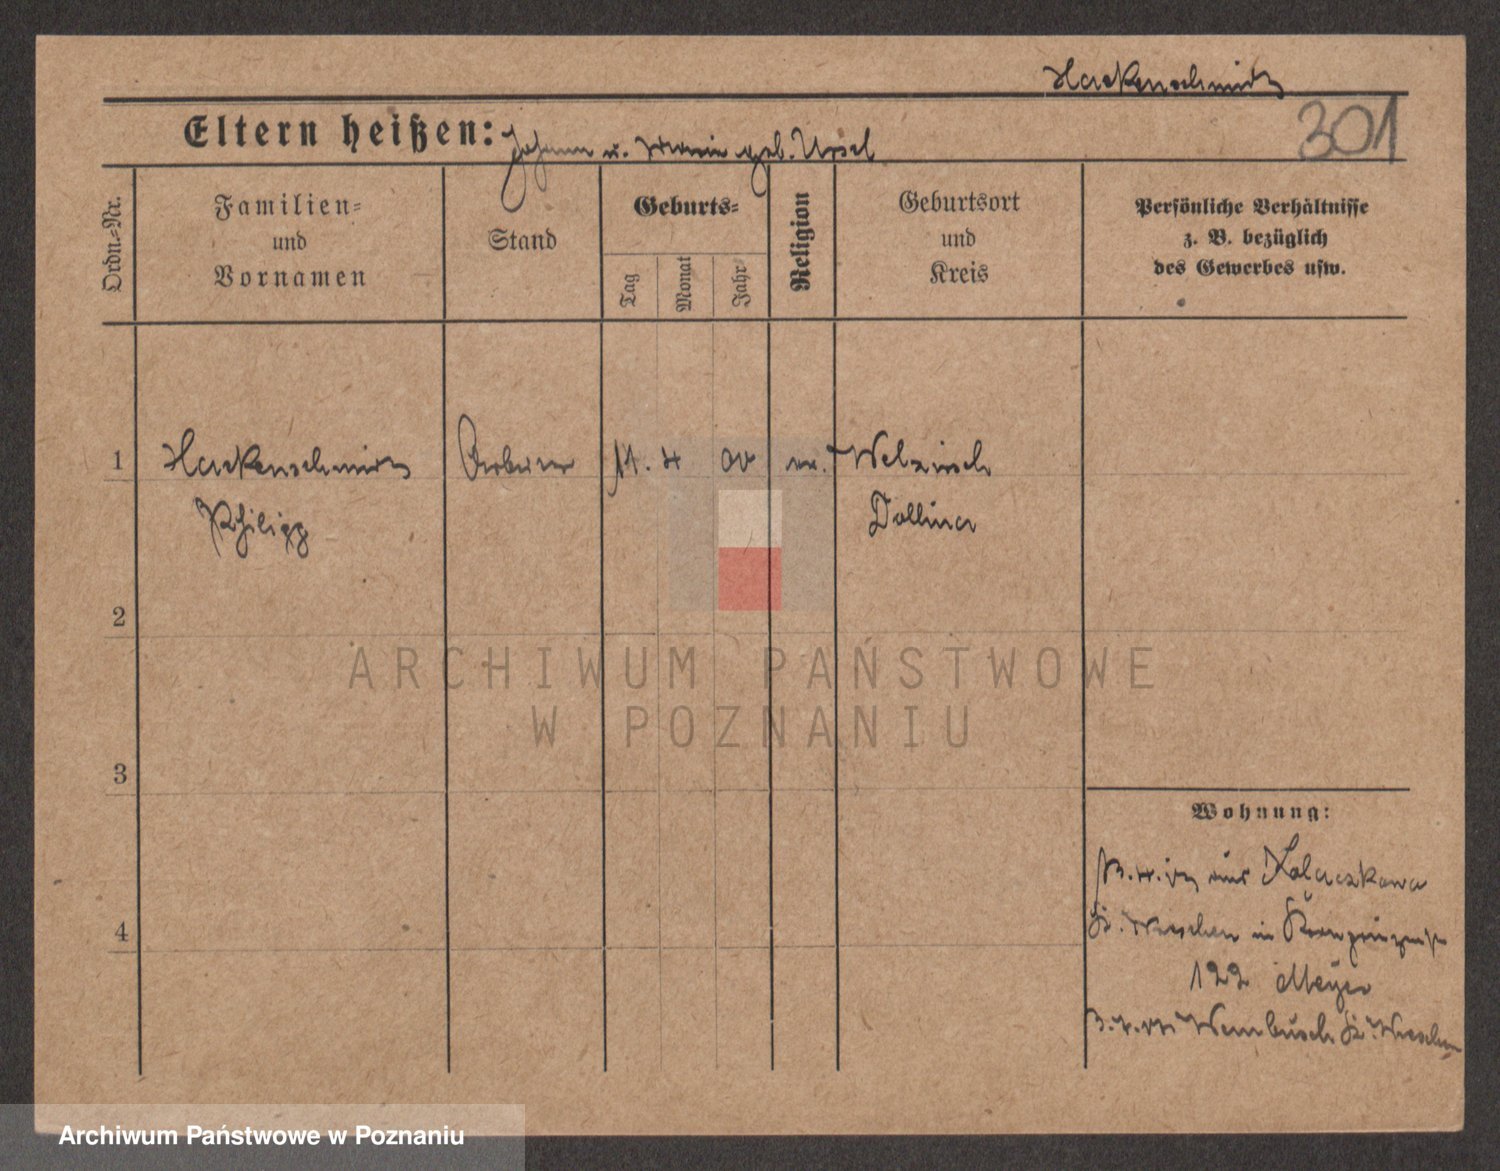 Hackenschmidt
Eltern heißen: Johann u. Maria geb. Ursel
301
Ordn.-Nr.
Familien-
und
Vornamen
Stand
Geburts-
Tag
Monat
Jahr
Religion
Geburtsort
und
Kreis
Persönliche Verhältnisse
z. B. bezüglich
des Gewerbes usw.
1
Hackenschmidt
Philipp
11. 4 00
Dollina
2
ARCHIWUM PAŃSTWOWE
W POZNANIU
3
Wohnung:
aus
4
Wreschen in
122 Meyer
Wreschen
Archiwum Państwowe w Poznaniu